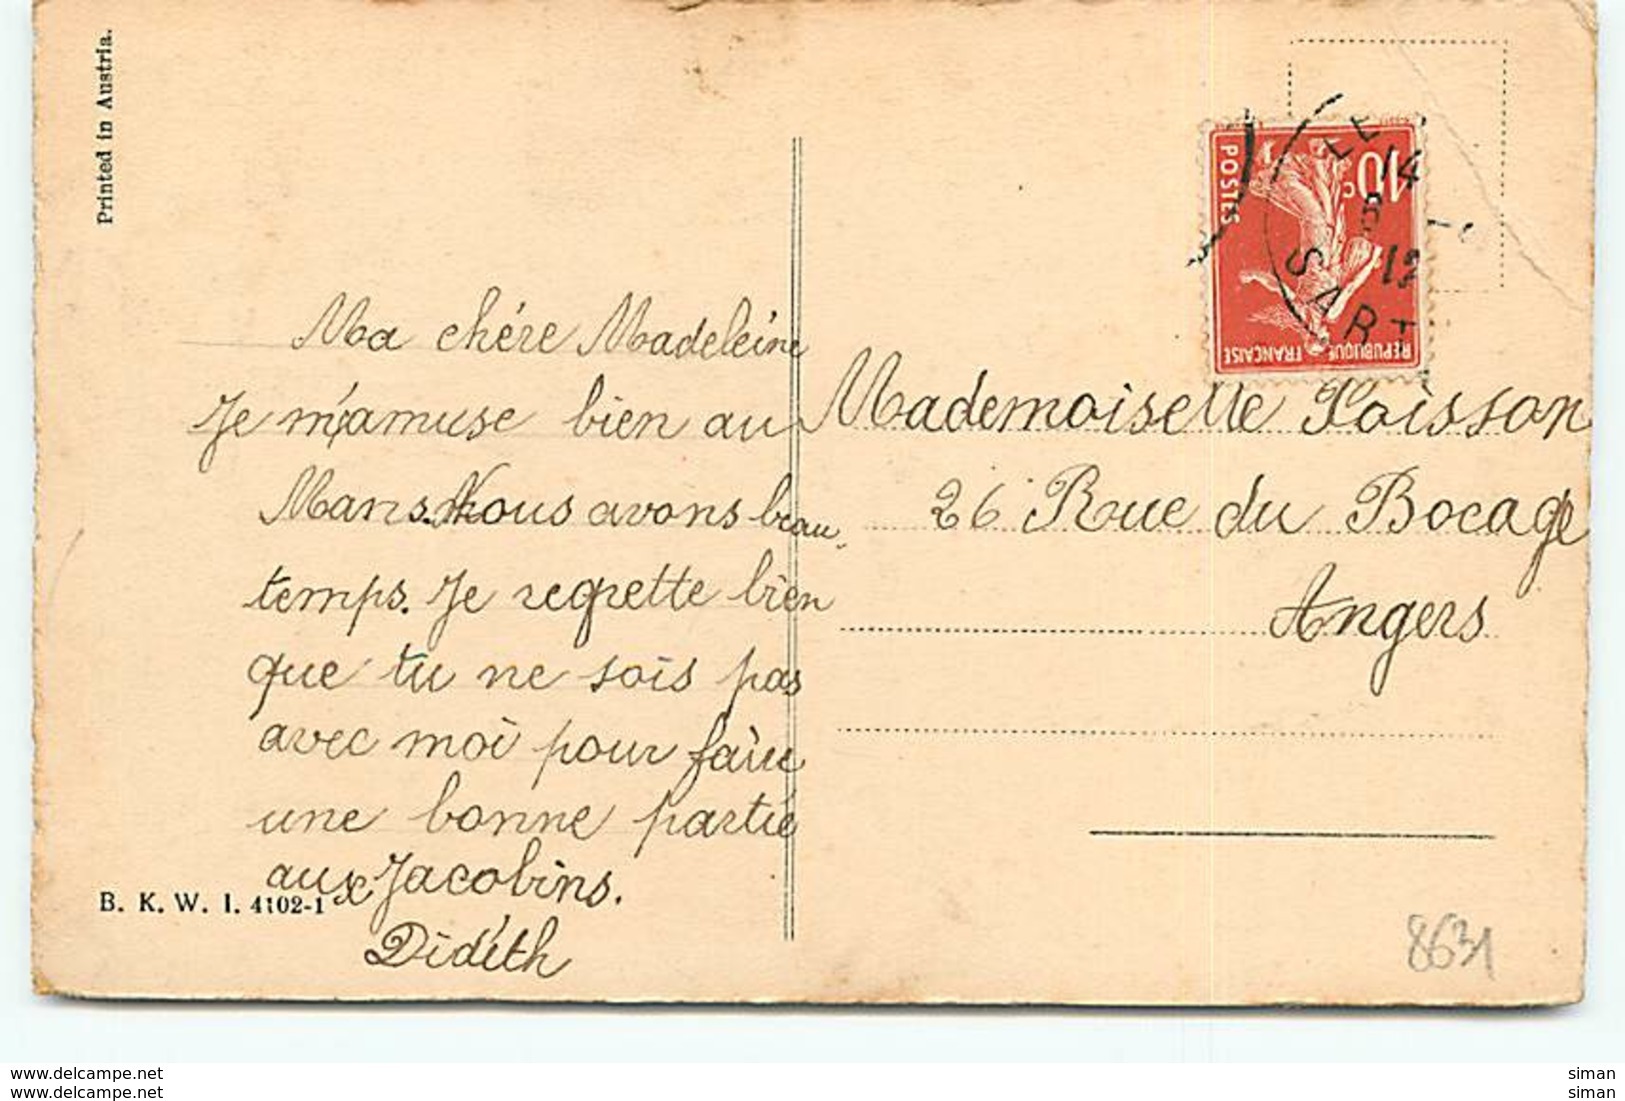 Printed in Austria.
10c
POSTES
REPUBLIQUE FRANÇAISE
LE
14
12
SART
Ma chére Madeleine
Je m'amuse bien au
Mans. Nous avons beau
temps. Je regrette bien
que tu ne sois pas
avec moi pour faire
une bonne partie
aux Jacobins.
Didith
Mademoiselle Poisson
26 Rue du Bocage
Angers
B. K. W. I. 4102-1
8631
www.delcampe.net
www.delcampe.net
siman
siman